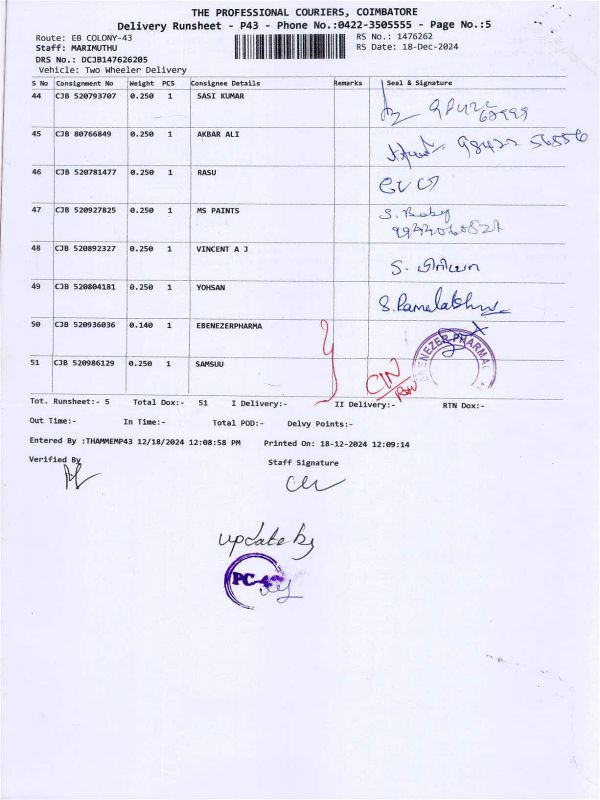 THE PROFESSIONAL COURIERS, COIMBATORE
Delivery Runsheet - P43 - Phone No.:0422-3505555 - Page No.:5
Route: EB COLONY-43
RS No.: 1476262
Staff: MARIMUTHU
RS Date: 18-Dec-2024
DRS No.: DCJB147626205
Vehicle: Two Wheeler Delivery
S No Consignment No Weight PCS Consignee Details Remarks Seal & Signature
44 CJB 520793707 0.250 1 SASI KUMAR
45 CJB 80766849 0.250 1 AKBAR ALI 98422 56556
46 CJB 520781477 0.250 1 RASU
47 CJB 520927825 0.250 1 MS PAINTS S. Baby
48 CJB 520892327 0.250 1 VINCENT A J S.
49 CJB 520804181 0.250 1 YOHSAN S.
50 CJB 520936036 0.140 1 EBENEZERPHARMA EBENEZER PHARMACY
51 CJB 520986129 0.250 1 SAMSUU
Tot. Runsheet:- 5 Total Dox:- 51 I Delivery:- II Delivery:- RTN Dox:-
Out Time:- In Time:- Total POD:- Delvy Points:-
Entered By :THAMMEMP43 12/18/2024 12:08:58 PM Printed On: 18-12-2024 12:09:14
Verified By
Staff Signature
update by
PC-4